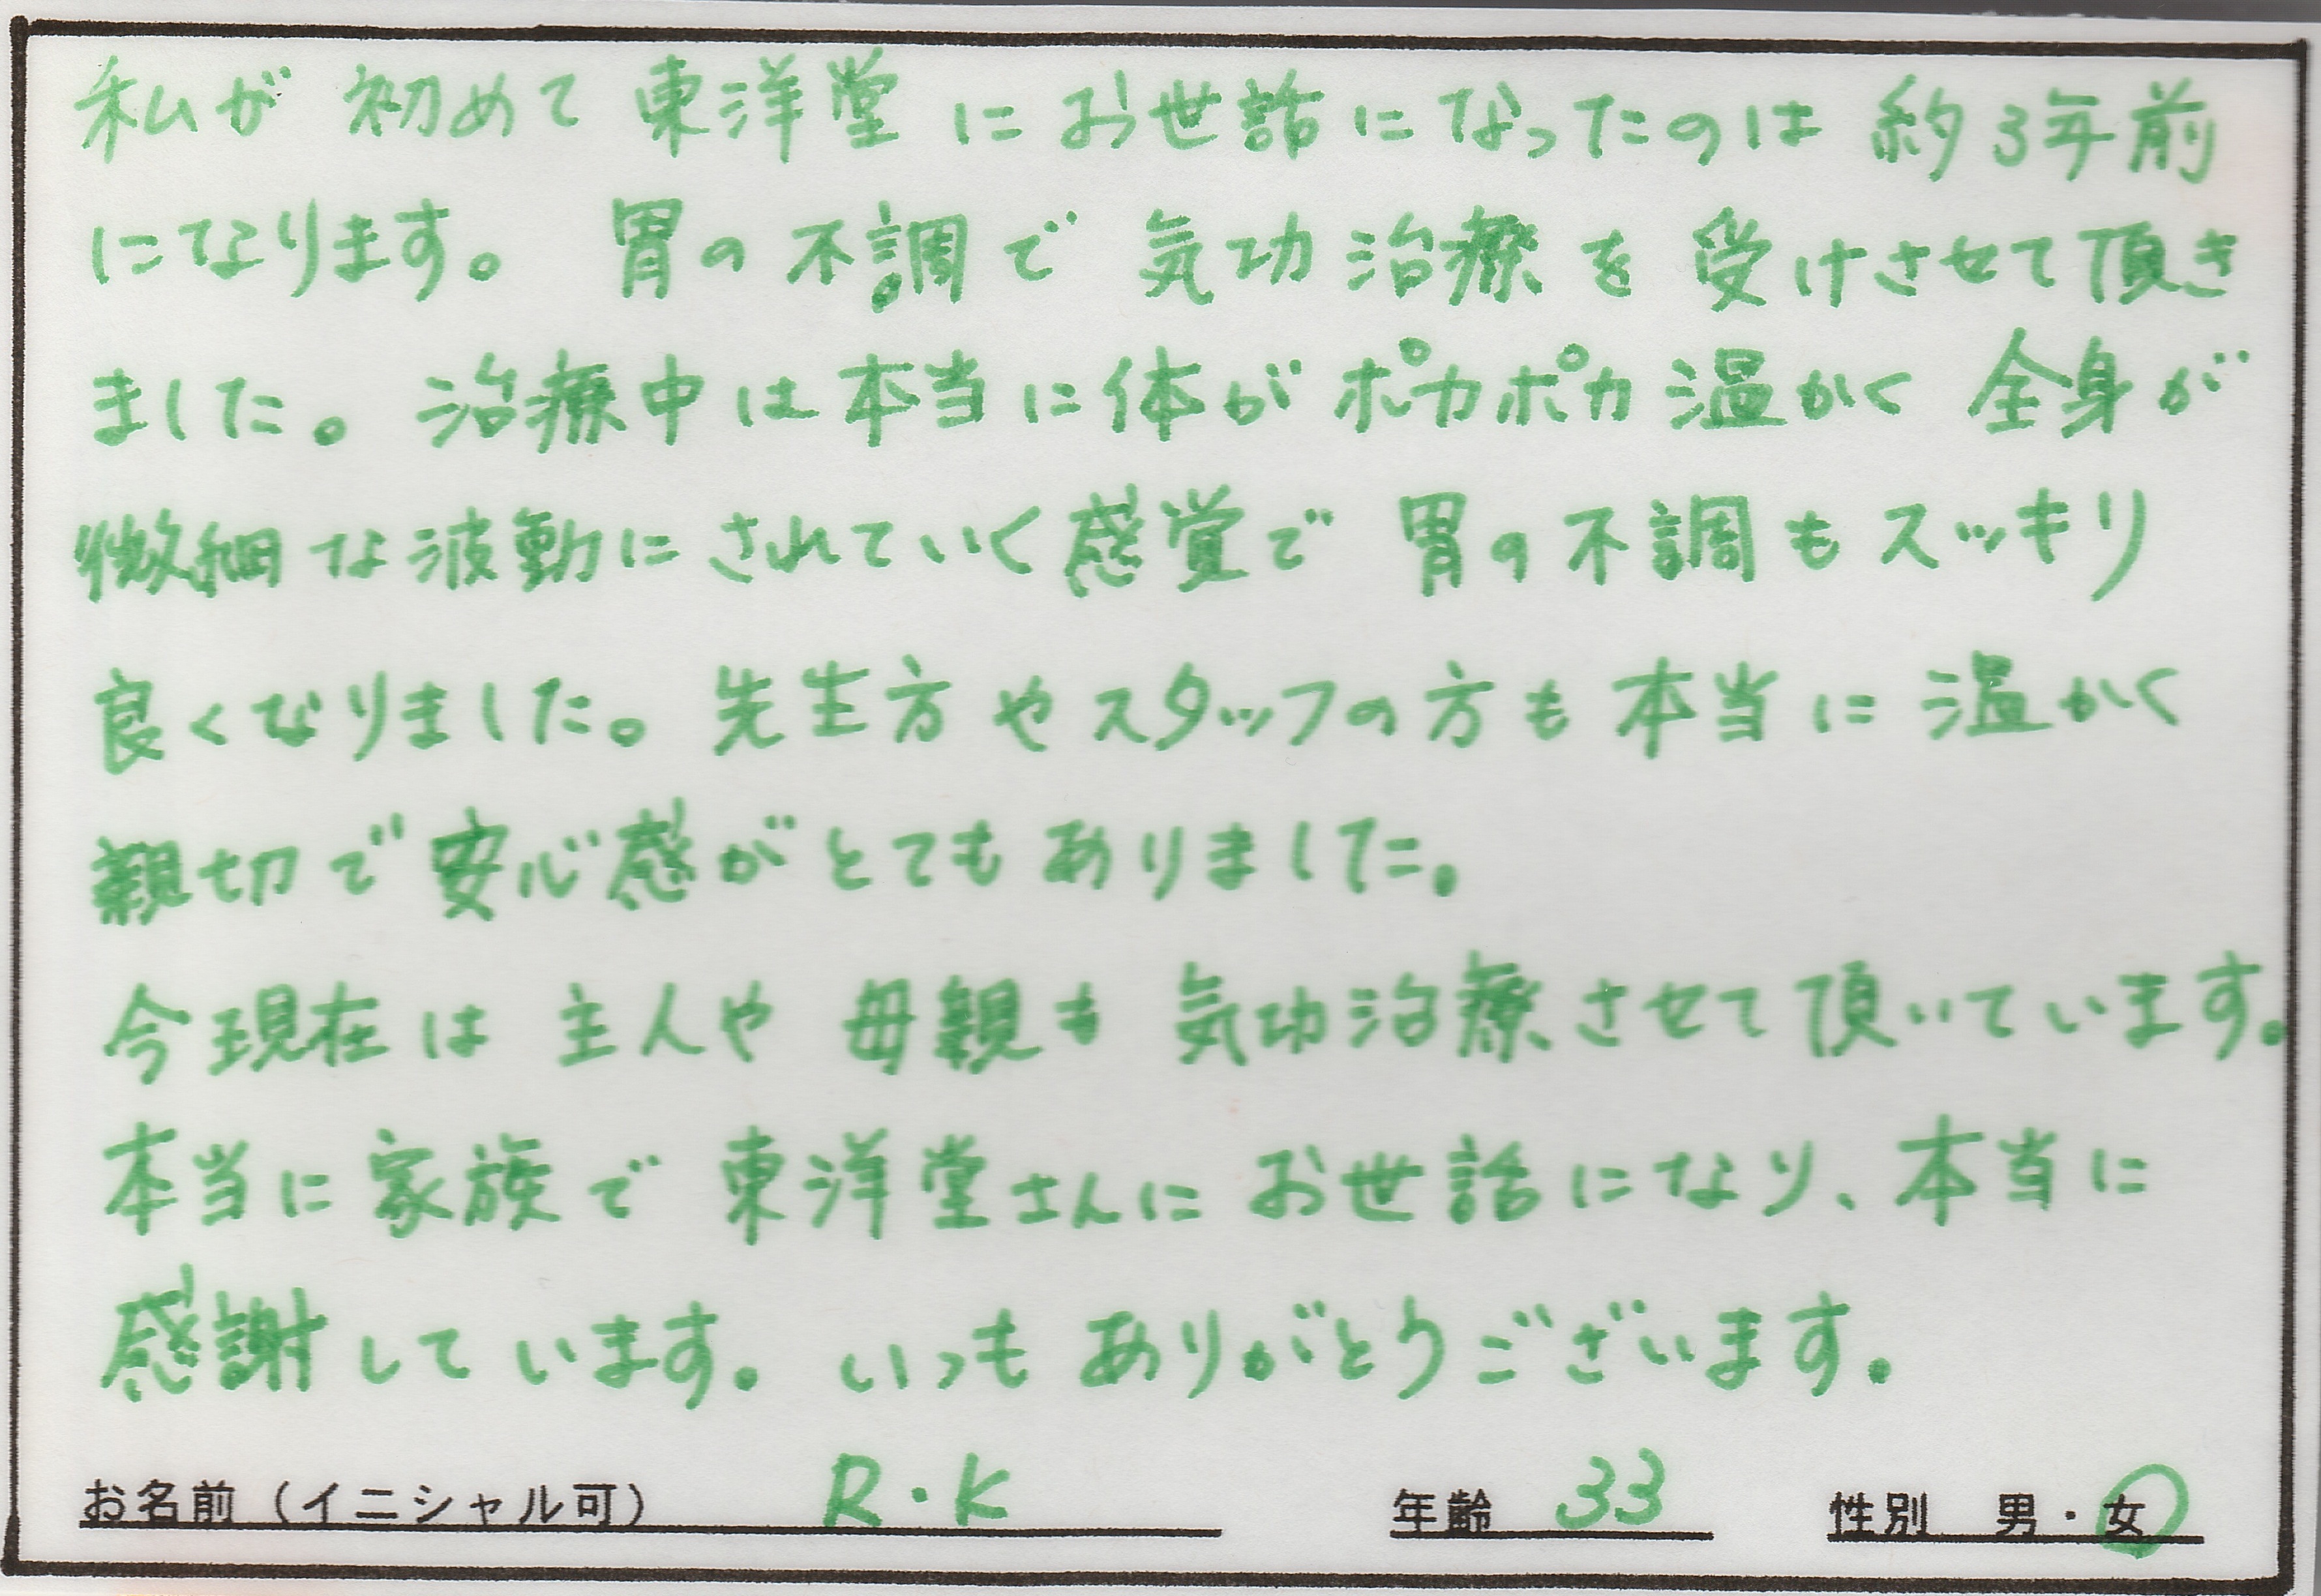 私が初めて東洋堂にお世話になったのは約3年前
になります。胃の不調で気功治療を受けさせて頂き
ました。治療中は本当に体がポカポカ温かく全身が
微細な波動にされていく感覚で胃の不調もスッキリ
良くなりました。先生方やスタッフの方も本当に温かく
親切で安心感がとてもありました。
今現在は主人や母親も気功治療させて頂いています。
本当に家族で東洋堂さんにお世話になり、本当に
感謝しています。いつもありがとうございます。
お名前(イニシャル可) R・K 年齢 33 性別 男・女